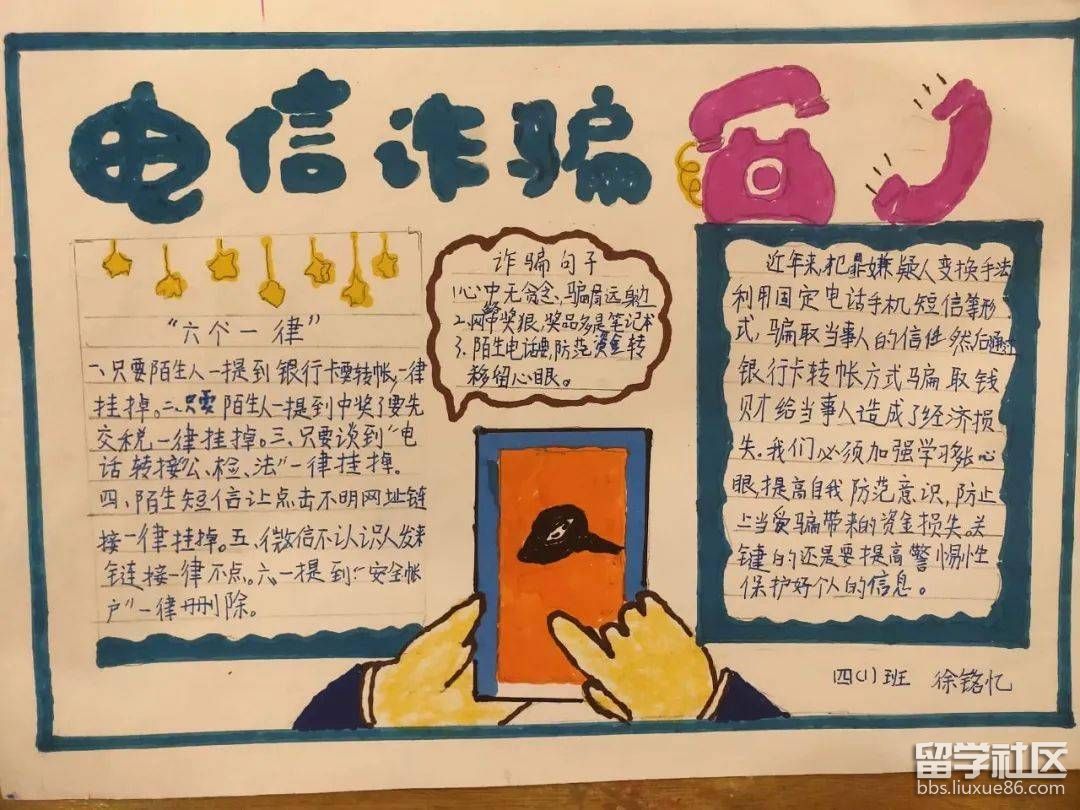 电信诈骗
“六个一律”
一、只要陌生人一提到银行卡要转帐,一律
挂掉。二、只要陌生人一提到中奖了要先
交税一律挂掉。三、只要谈到“电
话转接公、检、法”一律挂掉。
四、陌生短信让点击不明网址链
接一律挂掉。五、微信不认识人发来
链接一律不点。六、一提到“安全帐
户”一律删除。
诈骗句子
1.心中无贪念、骗局远身边
2.网中奖狠,奖品多是笔记本
3.陌生电话要防范资金转
移留心眼。
近年来,犯罪嫌疑人变换手法
利用固定电话手机短信等形
式,骗取当事人的信任,然后通过
银行卡转帐方式骗取钱
财给当事人造成了经济损
失。我们必须加强学习多长心
眼提高自我防范意识,防止
上当受骗带来的资金损失。关
键的还是要提高警惕性
保护好个人的信息。
四(1)班 徐铭忆
留学社区
bbs.liuxue86.com